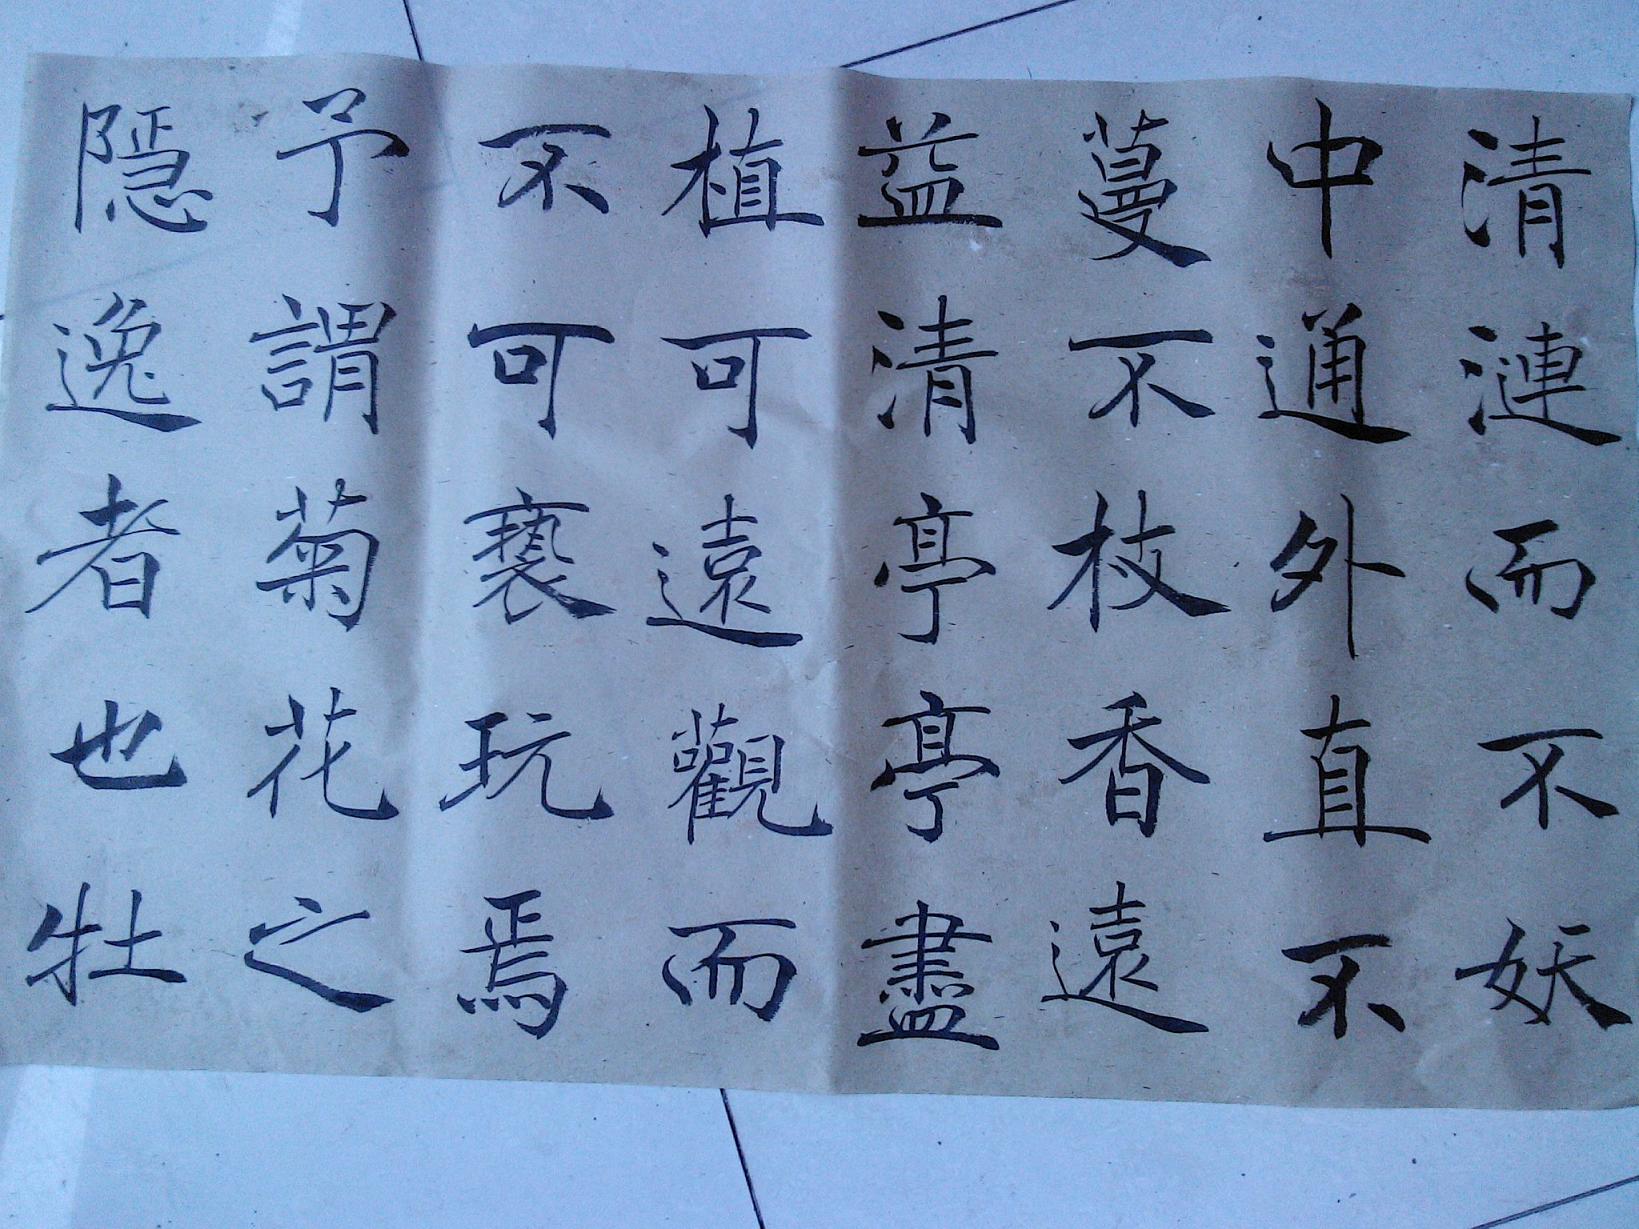 清漣而不妖
中通外直不
蔓不枝香遠
益清亭亭盡
植可遠觀而
不可褻玩焉
予謂菊花之
隱逸者也牡